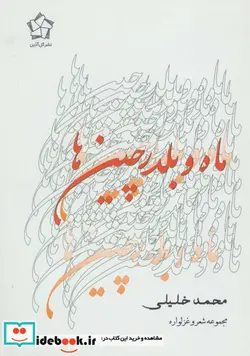 نشر گل آذین
ماه و بلدرچین ها
محمد خلیلی
مجموعه شعر و غزلواره
مشاهده و خرید این کتاب در:
idebook.ir